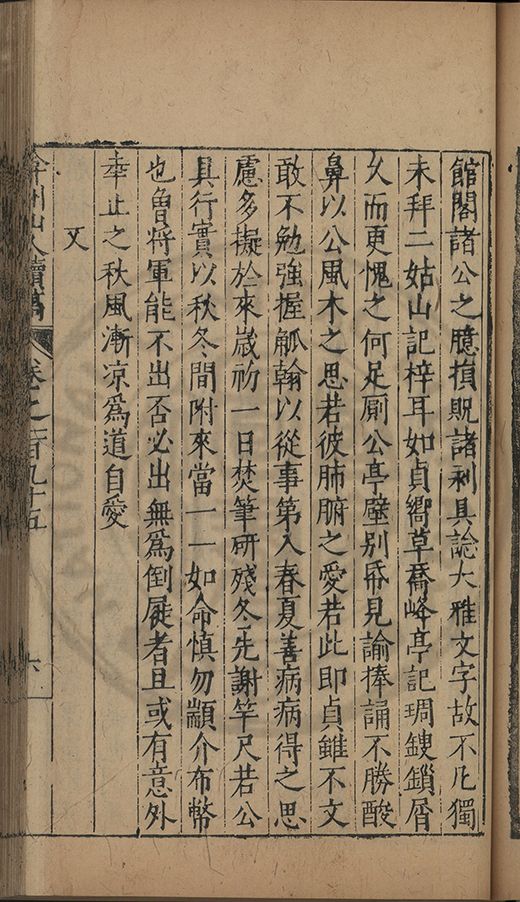 館閣諸公之臆損貺諸刹具諗大雅文字故不凡獨
未拜二姑山記梓耳如貞嚮草喬峰亭記琱鍥鎖屑
久而更愧之何足厠公亭壁别帋見諭捧誦不勝酸
鼻以公風木之思若彼肺腑之愛若此即貞雖不文
敢不勉強握觚翰以從事第入春夏善病病得之思
慮多擬於來歲初一日焚筆研殘冬先謝竿尺若公
具行實以秋冬間附來當一一如命慎勿顓介布幣
也魯將軍能不出否必出無爲倒屣者且或有意外
幸止之秋風漸凉爲道自愛
又
弇州山人續稿
卷之一百九十五
六